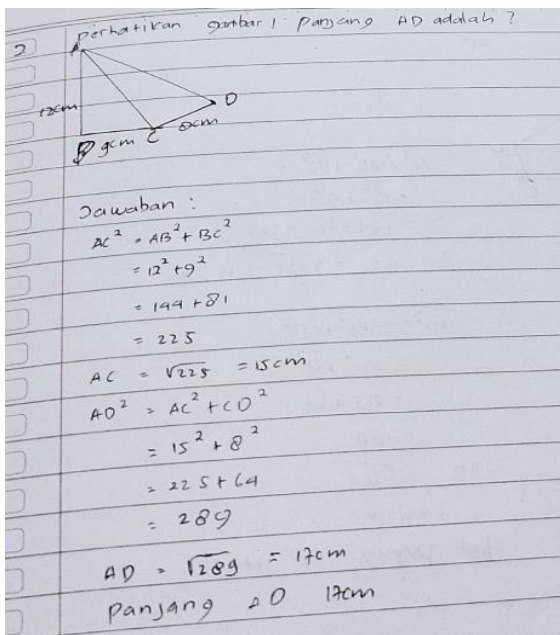 2
perhatikan gambar! panjang AD adalah ?
A
12cm
D
8cm
B 9cm C
Jawaban :
AC² = AB² + BC²
= 12² + 9²
= 144 + 81
= 225
AC = √225 = 15cm
AD² = AC² + CD²
= 15² + 8²
= 225 + 64
= 289
AD = √289 = 17cm
Panjang AD 17cm